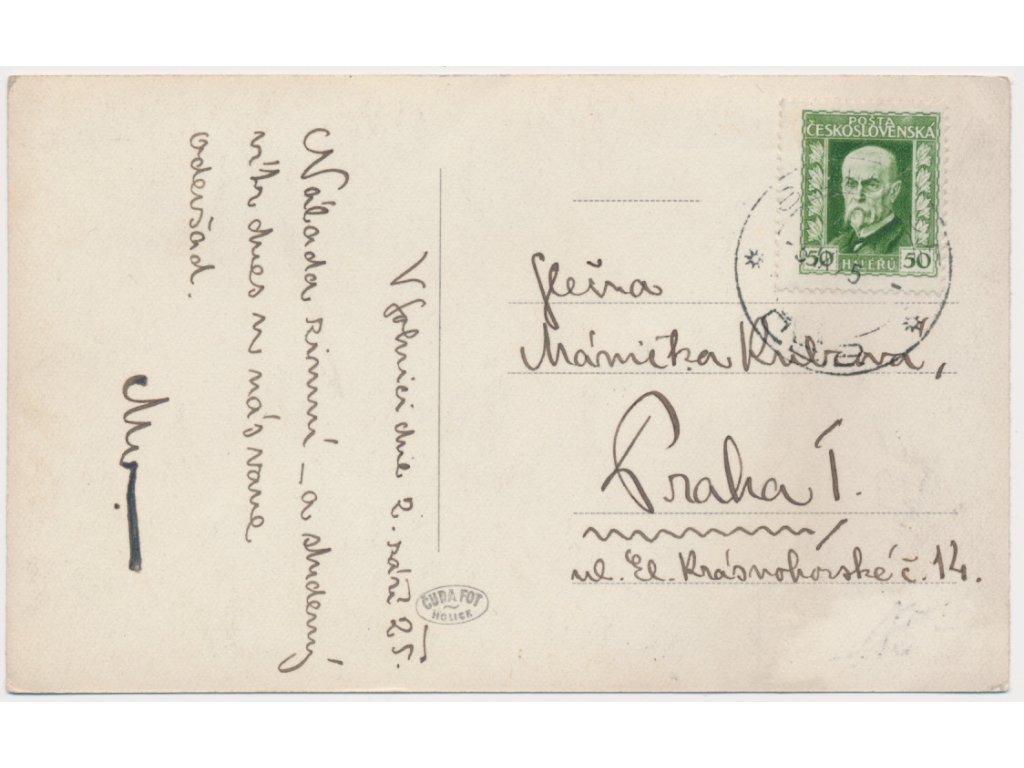 V Johnici dne 2. září 25.
Nálada zimní – a studený
vítr dnes u nás vane
odevšad.
POŠTA
ČESKOSLOVENSKÁ
50 HALÉŘŮ 50
Slečna
Mánička
Praha I.
ul. El. Krásnohorské č. 14.
ČUDA FOT
HOLICE